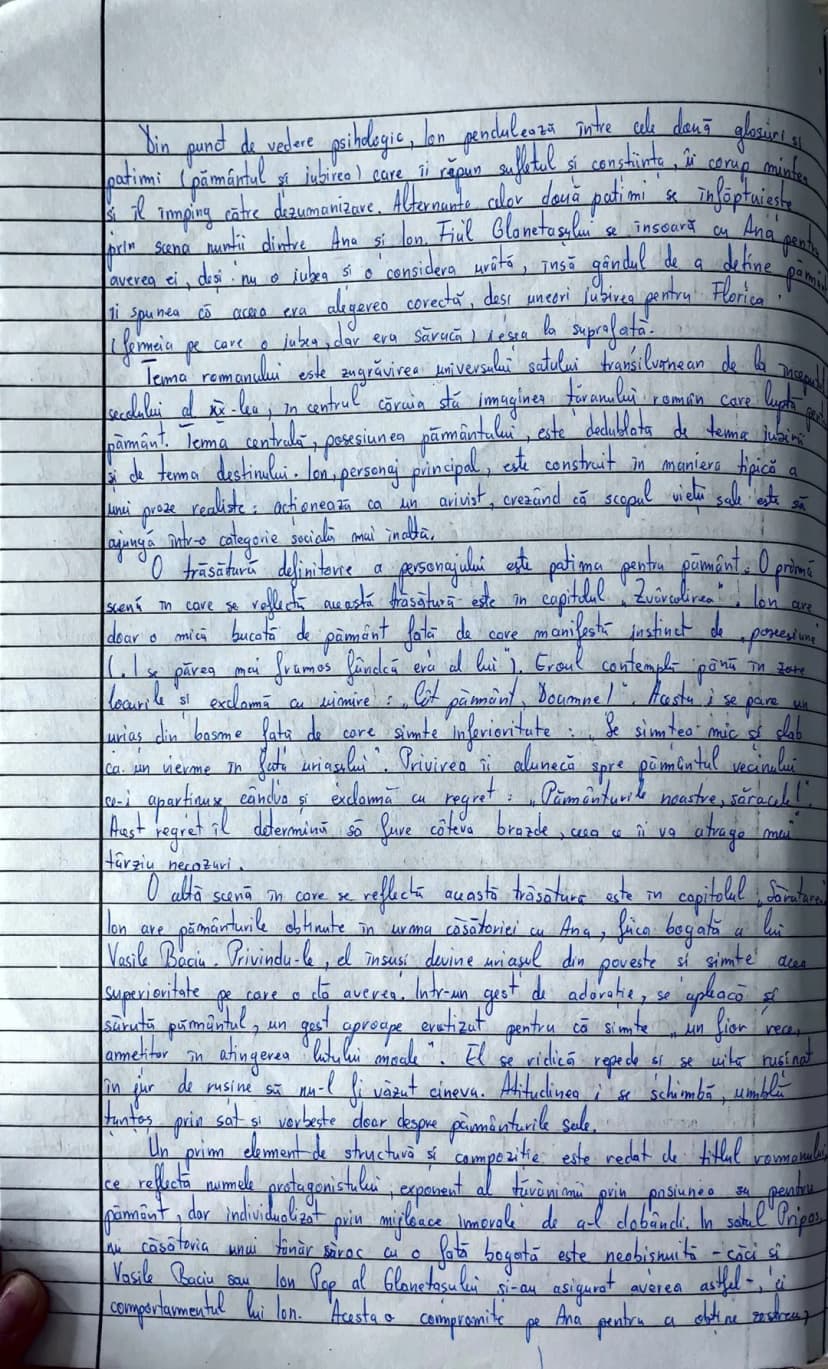 Din punct de vedere psihologic, Ion pendulează între cele două glasuri și
patimi (pământul și iubirea) care îi răpun sufletul și conștiința, îi corup mintea
și îl împing către dezumanizare. Alternanța celor două patimi se înfăptuiește
prin scena nunții dintre Ana și Ion. Fiul Glanetașului se însoară cu Ana pentru
averea ei, deși nu o iubea și o considera urâtă, însă gândul de a deține
îi spunea că aceea era alegerea corectă, deși uneori iubirea pentru Florica
(femeia pe care o iubea, dar era săracă) ieșea la suprafață.
Tema romanului este zugrăvirea universului satului transilvănean de la
secolului al XX-lea, în centrul căruia stă imaginea țăranului român care luptă
pământ. Tema centrală, posesiunea pământului, este dedublată de tema iubirii
și de tema destinului. Ion, personaj principal, este construit în maniera tipică a
unei proze realiste: acționează ca un arivist, crezând că scopul vieții sale este să
ajungă într-o categorie socială mai înaltă.
O trăsătură definitorie a personajului este patima pentru pământ. O primă
scenă în care se reflectă această trăsătură este în capitolul „Zvârcolirea". Ion are
doar o mică bucată de pământ față de care manifestă instinct de posesiune
(„I se părea mai frumos fiindcă era al lui"). Eroul contemplă până în zare
locurile și exclamă cu uimire: „Cât pământ, Doamne!". Acesta i se pare un
uriaș din basme față de care simte inferioritate: „Se simțea mic și slab
ca un vierme în fața uriașului". Privirea îi alunecă spre pământul vecinului
ce-i aparținuse cândva și exclamă cu regret: „Pământurile noastre, săracele!".
Acest regret îl determină să fure câteva brazde, ceea ce îi va atrage mai
târziu necazuri.
O altă scenă în care se reflectă această trăsătură este în capitolul „Sărutarea
Ion are pământurile obținute în urma căsătoriei cu Ana, fiica bogată a lui
Vasile Baciu. Privindu-le, el însuși devine uriașul din poveste și simte acea
superioritate pe care o dă averea. Într-un gest de adorație, se apleacă și
sărută pământul, un gest aproape erotizat pentru că simte „un fior rece,
amețitor în atingerea lutului moale". El se ridică repede și se uită rușinat
în jur de rușine să nu-l fi văzut cineva. Atitudinea i se schimbă, umblă
țanțoș prin sat și vorbește doar despre pământurile sale.
Un prim element de structură și compoziție este redat de titlul romanului,
ce reflectă numele protagonistului, exponent al țărănimii prin pasiunea sa pentru
pământ, dar individualizat prin mijloace imorale de a-l dobândi. În satul Pripas,
nu căsătoria unui tânăr sărac cu o fată bogată este neobișnuită – căci și
Vasile Baciu sau Ion Pop al Glanetașului și-au asigurat averea astfel –, ci
comportamentul lui Ion. Acesta o compromite pe Ana pentru a obține zestrea,